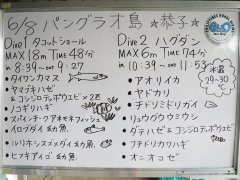 6/8 パングラオ島 ☆恭子☆
Dive1 タコットショール
MAX 18m TIME 48分
in 8:39 ~ 9:27
・タイワンカマス
・ヤマブキハゼ
& コシジロテッポウエビ ×2ヶ
・コギリハギ
・スパインチークアネモネフィッシュ
・イロブダイ 幼魚
・ルリホシスズメダイ 幼魚
・ヒフキアイゴ 幼魚
Dive2 ハグダン
MAX 16m TIME 74分
in 10:39 ~ out 11:53
・アオリイカ
・ヤドカリ
・チドリミドリガイ
・リュウグウウミウシ
・ダテハゼ & コシジロテッポウエビ
・フチドリカワハギ
・オニオコゼ
水温
29-30
℃